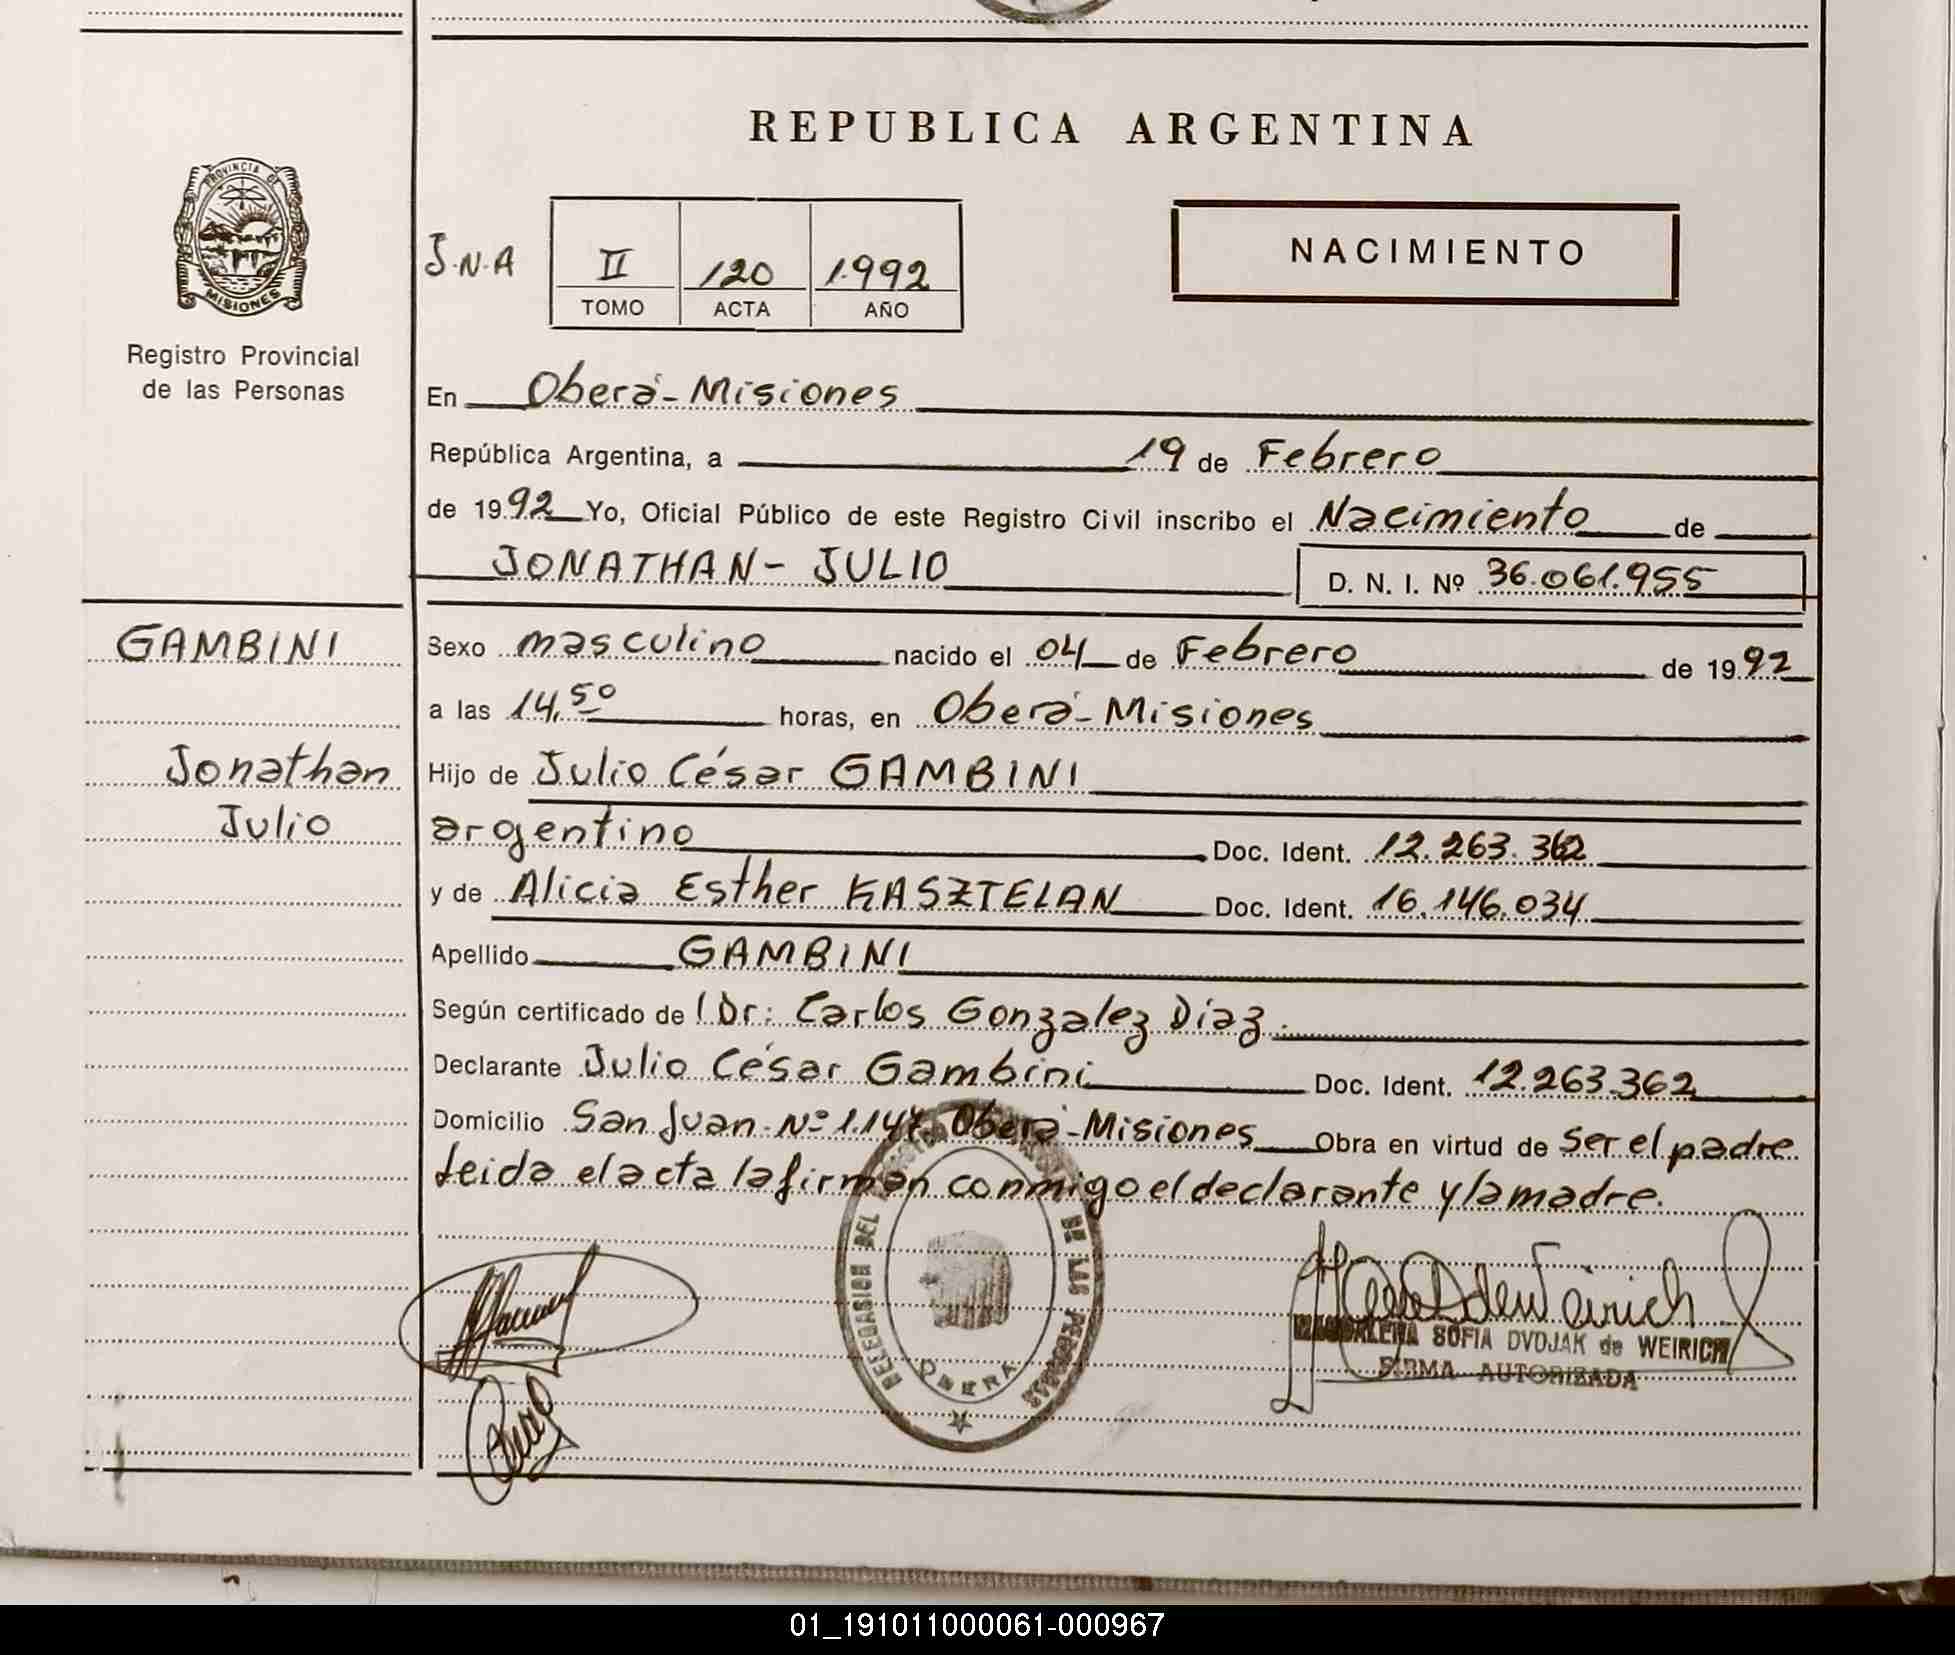 REPUBLICA ARGENTINA
PROVINCIA DE
MISIONES
Registro Provincial
de las Personas
J.N.A
II 120 1.992
TOMO ACTA AÑO
NACIMIENTO
En Oberá - Misiones
República Argentina, a 19 de Febrero
de 1992 Yo, Oficial Público de este Registro Civil inscribo el Nacimiento de
JONATHAN - JULIO D. N. I. Nº 36.061.955
GAMBINI
Jonathan
Julio
Sexo masculino nacido el 04 de Febrero de 1992
a las 14,50 horas, en Oberá - Misiones
Hijo de Julio César GAMBINI
argentino Doc. Ident. 12.263.362
y de Alicia Esther KASZTELAN Doc. Ident. 16.146.034
Apellido GAMBINI
Según certificado de l Dr: Carlos Gonzalez Diaz.
Declarante Julio César Gambini Doc. Ident. 12.263.362
Domicilio San Juan Nº 1.147 Oberá - Misiones Obra en virtud de ser el padre
Leida el acta la firman conmigo el declarante y la madre.
DELEGASION DEL DE LAS PERSONAS
OBERA
MAGDALENA SOFIA DVOJAK de WEIRICH
FIRMA AUTORIZADA
01_191011000061-000967